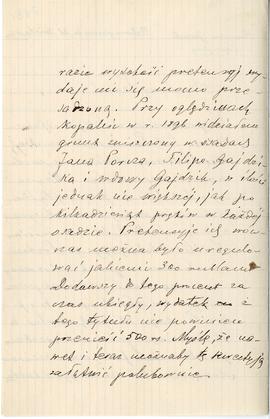 razie wysokość pretensyj wy
daje mi się mocno prze
sadzoną. Przy oględzinach
kopalni w r. 1896 widziałem
grunt zniszczony w osadach
Jana Porca, Filipa Gajdzi
ka i wdowy Gajdzik, w ilości
jednak nie większej, jak po
kilkadziesiąt prętów w każdej
osadzie. Pretensyje ich wów
czas można było uregulo
wać jakiemi 300 rublami.
Dodawszy do tego procent za
czas ubiegły, wydatek z
tego tytułu nie powinien
przenieść 500 rs. Myślę, że na
wet i teraz możnaby tę kwestyję
załatwić polubownie.